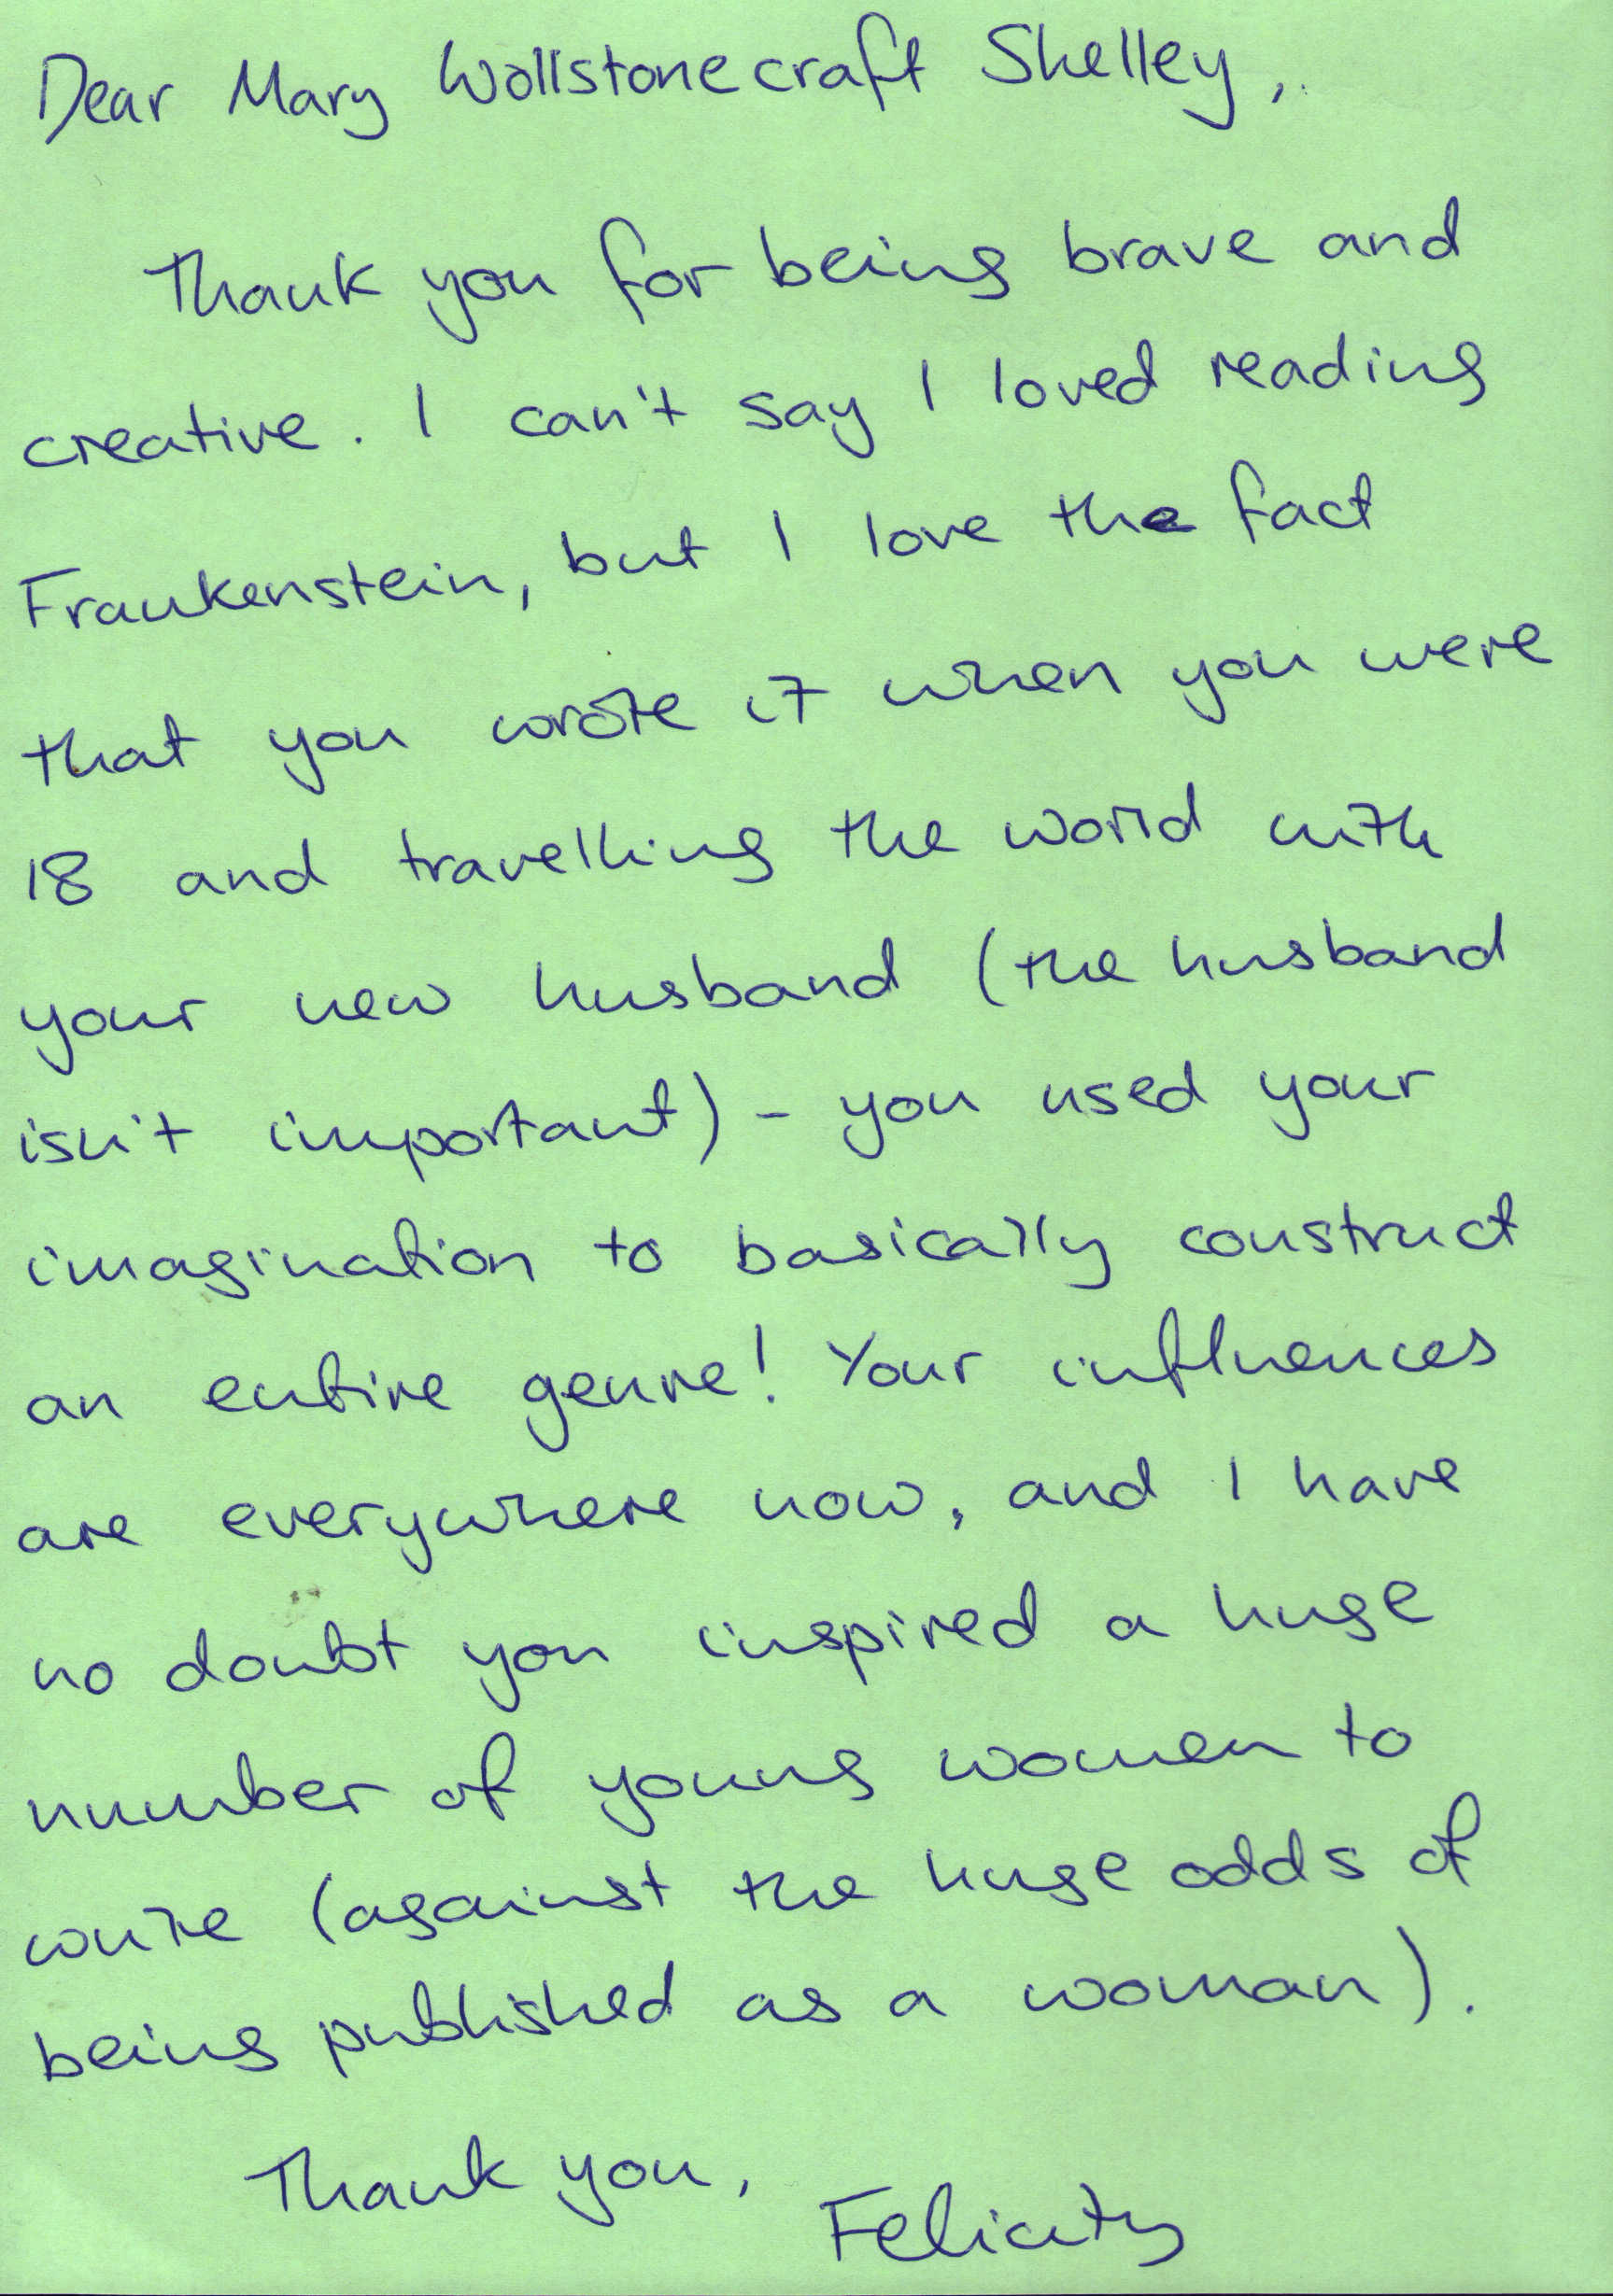 Dear Mary Wollstonecraft Shelley,
Thank you for being brave and
creative. I can't say I loved reading
Frankenstein, but I love the fact
that you wrote it when you were
18 and travelling the world with
your new husband (the husband
isn't important) - you used your
imagination to basically construct
an entire genre! Your influences
are everywhere now, and I have
no doubt you inspired a huge
number of young women to
write (against the huge odds of
being published as a woman).
Thank you,
Felicity